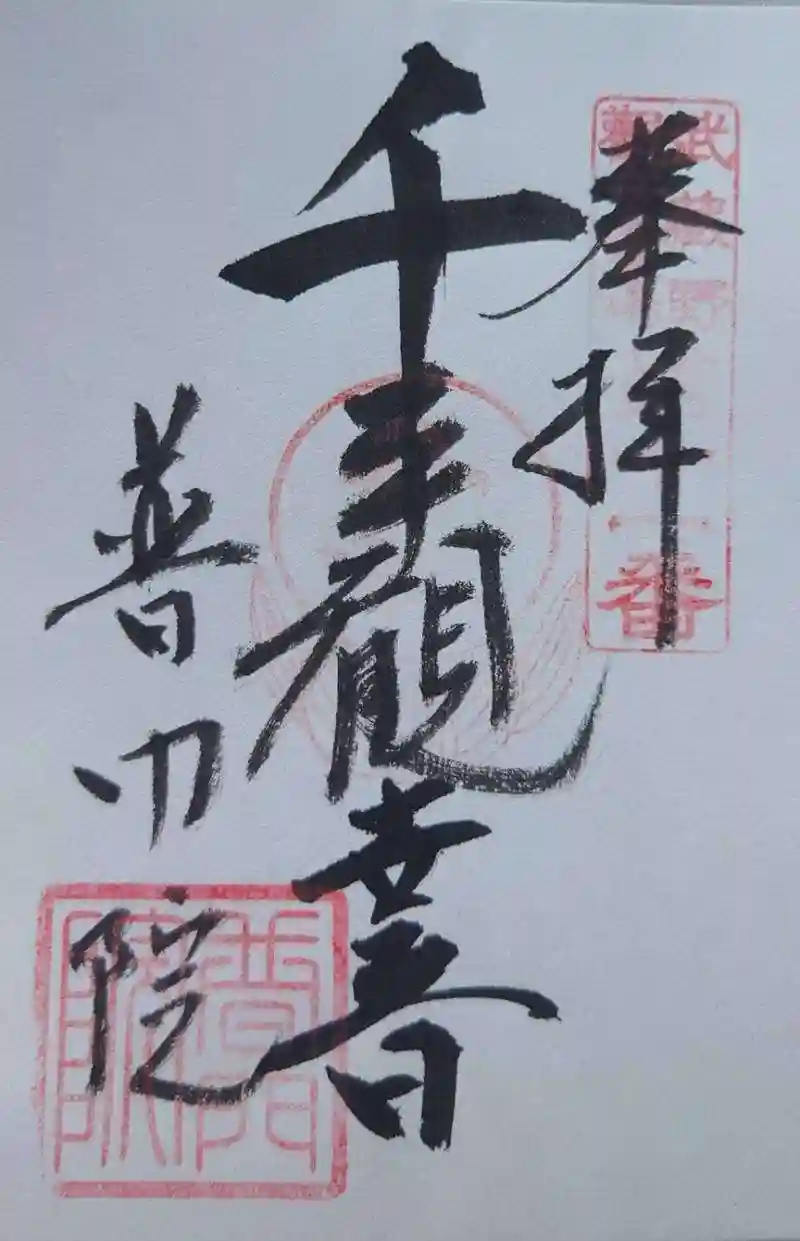 奉拝
千手観世音
普門院
武蔵野
一番
普門院